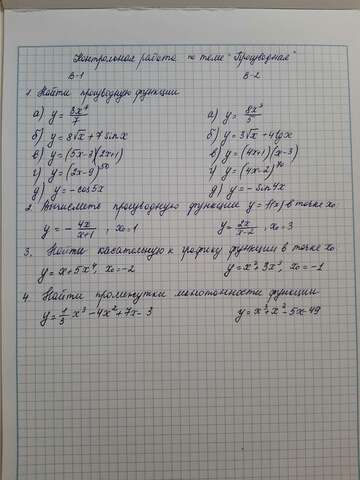 Контрольная работа по теме "Производная"
В-1 В-2
1. Найти производную функции
а) y = 3x⁴/7 а) y = 8x³/5
б) y = 8√x + 7 sin x б) y = 3√x + 4 tg x
в) y = (5x-3)(2x+1) в) y = (4x+1)(x-3)
г) y = (2x-9)⁵⁰ г) y = (4x-2)⁷⁰
д) y = -cos 5x д) y = -sin 4x
2. Вычислите производную функции y = f(x) в точке x₀
y = - 4x/x+1, x₀=1 y = 2x/x-2, x₀=3
3. Найти касательную к графику функции в точке x₀
y = x+5x⁴, x₀=-2 y = x²+3x³, x₀=-1
4. Найти промежутки монотонности функции
y = 1/3 x³-4x²+7x-3 y = x³+x²-5x-49